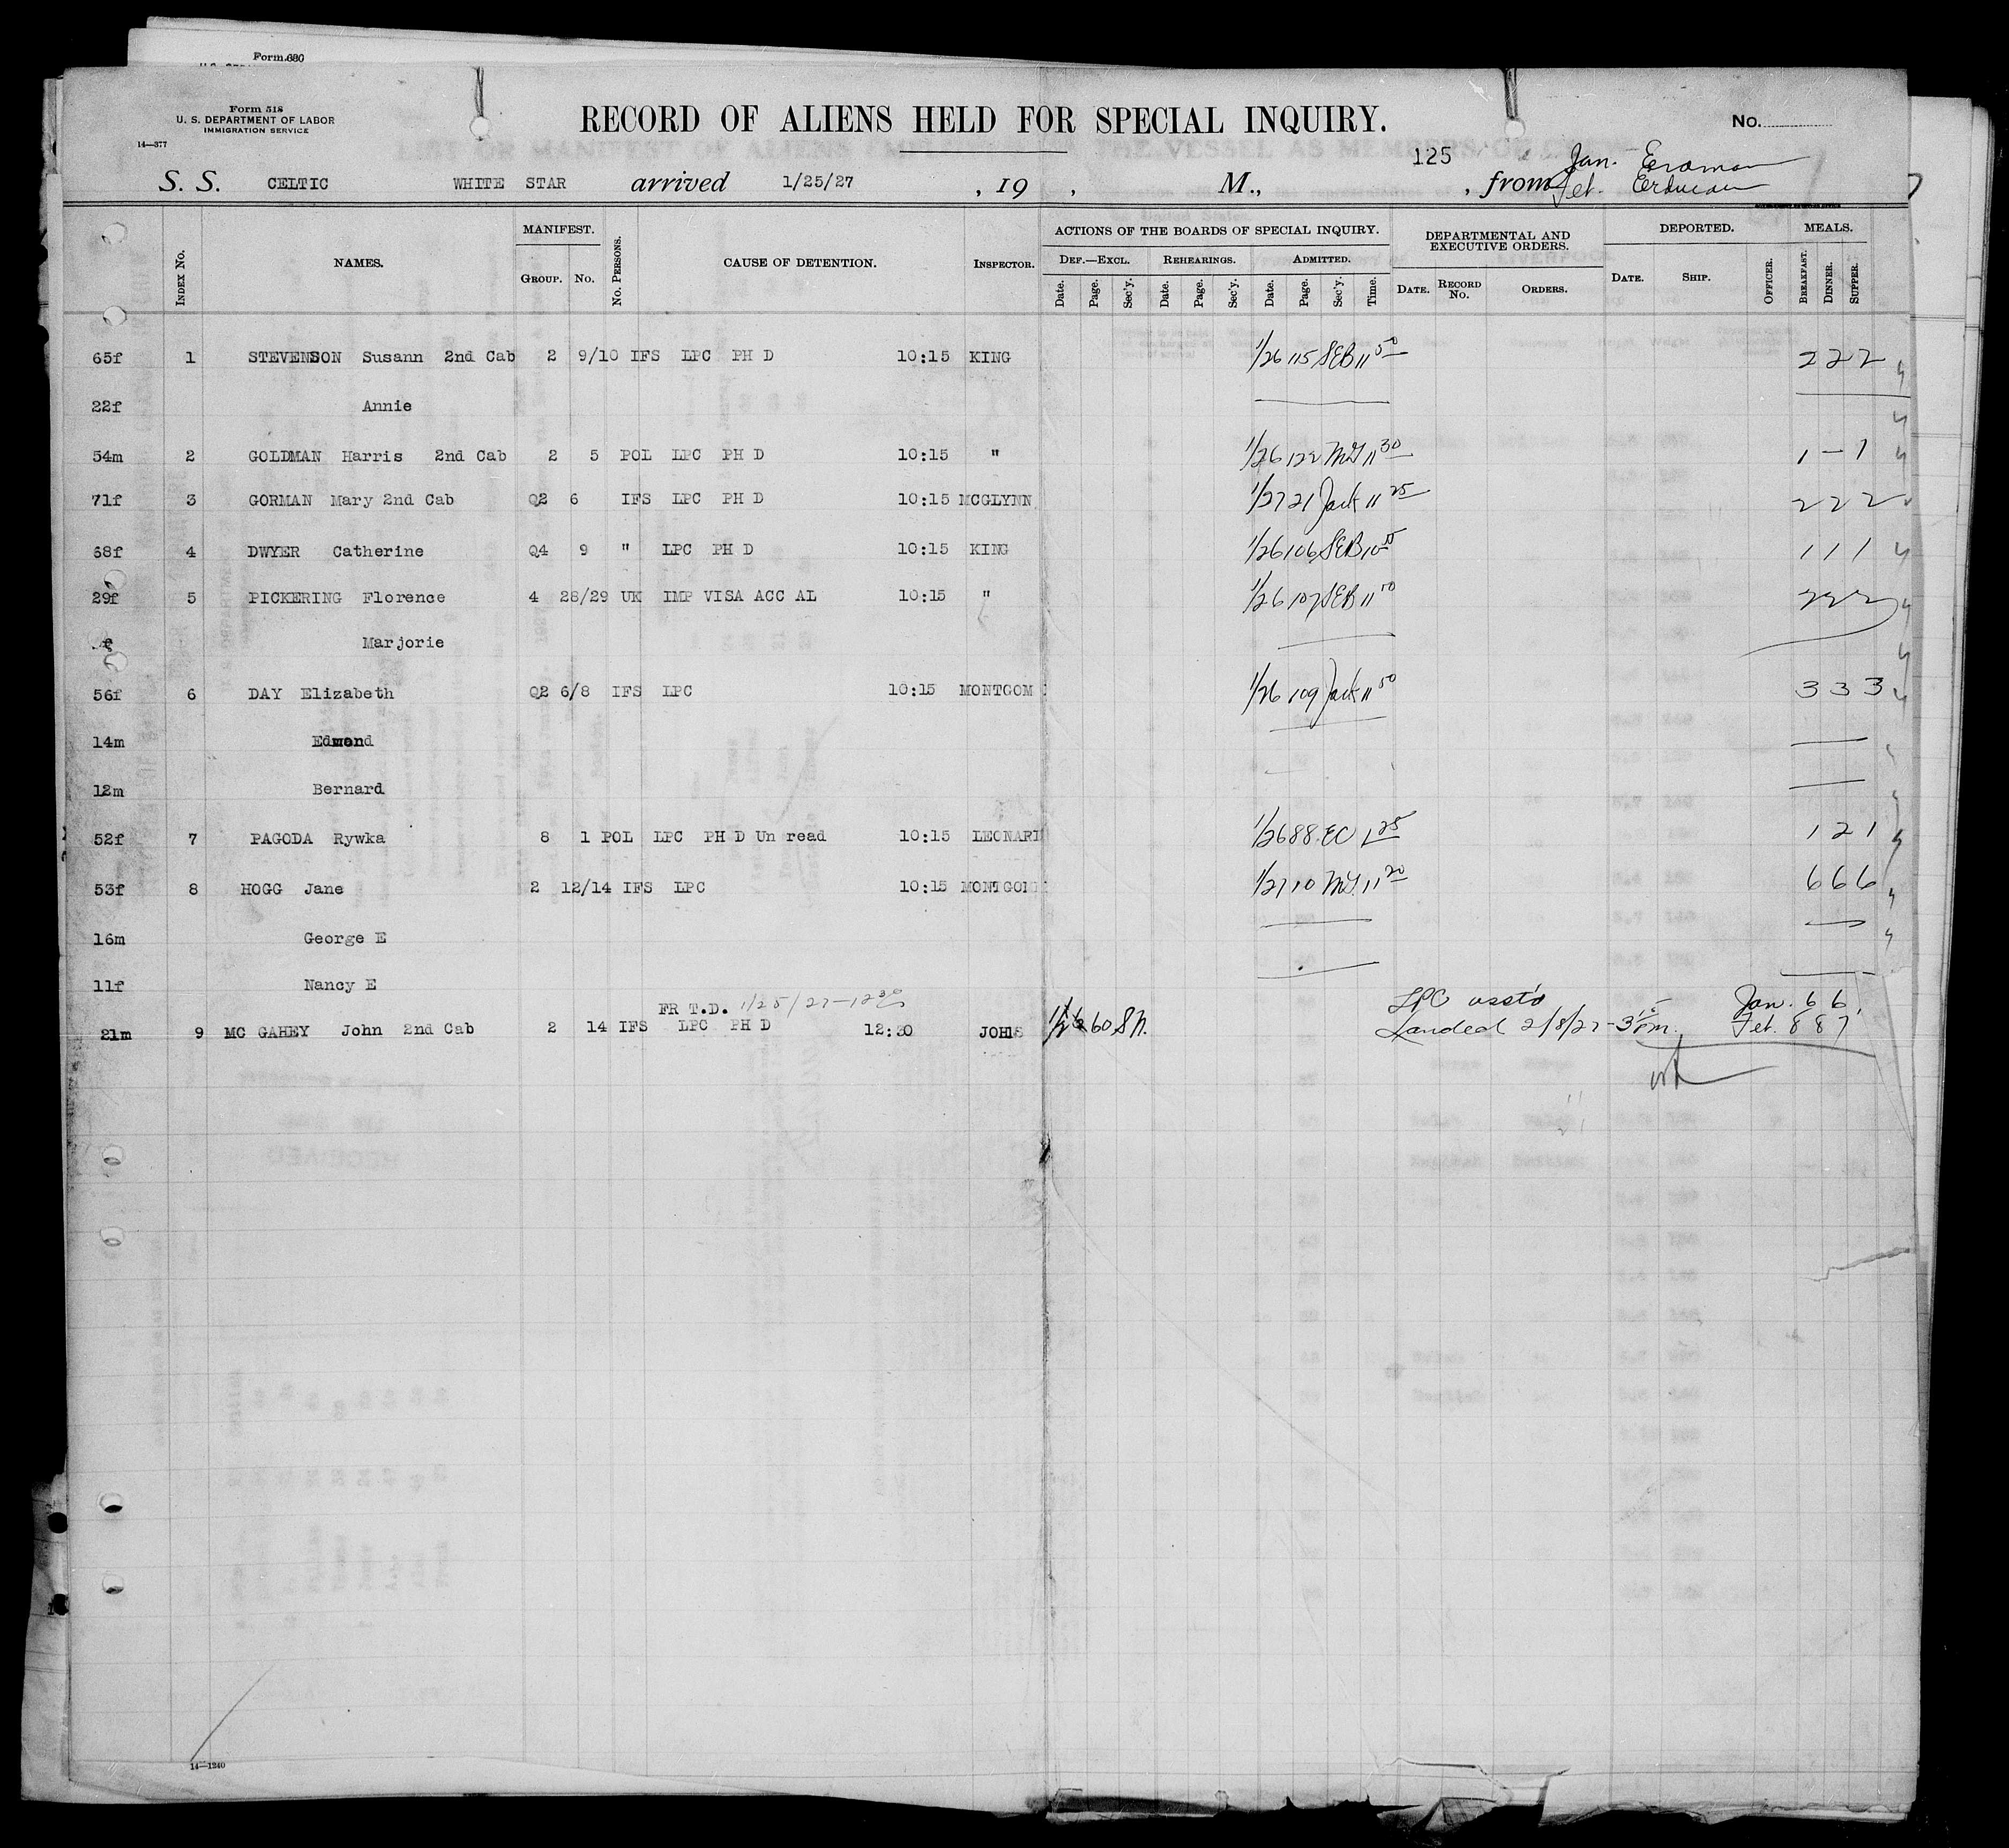 Form 680
Form 518
U. S. DEPARTMENT OF LABOR
IMMIGRATION SERVICE
14—377
RECORD OF ALIENS HELD FOR SPECIAL INQUIRY.
No.
125
Jan. Erdman
S. S. CELTIC WHITE STAR arrived 1/25/27 , 19 , M., , from Feb. Erdman
INDEX No. NAMES. MANIFEST. GROUP. No. No. PERSONS. CAUSE OF DETENTION. INSPECTOR. ACTIONS OF THE BOARDS OF SPECIAL INQUIRY. DEPARTMENTAL AND EXECUTIVE ORDERS. DEPORTED. MEALS.
DEF.—EXCL. REHEARINGS. ADMITTED.
Date. Page. Sec'y. Date. Page. Sec'y. Date. Page. Sec'y. Time. DATE. RECORD No. ORDERS. DATE. SHIP. OFFICER. BREAKFAST. DINNER. SUPPER.
65f 1 STEVENSON Susann 2nd Cab 2 9/10 IFS LPC PH D 10:15 KING 1/26 115 SEB 11 50 2 2 2
22f Annie
54m 2 GOLDMAN Harris 2nd Cab 2 5 POL LPC PH D 10:15 " 1/26 122 McG 11 30 1 — 1
71f 3 GORMAN Mary 2nd Cab Q2 6 IFS LPC PH D 10:15 MCGLYNN 1/27 21 Jack 11 25 2 2 2
68f 4 DWYER Catherine Q4 9 " LPC PH D 10:15 KING 1/26 106 SEB 10 55 1 1 1
29f 5 PICKERING Florence 4 28/29 UK IMP VISA ACC AL 10:15 " 1/26 107 SEB 11 50 2 2 2
f Marjorie
56f 6 DAY Elizabeth Q2 6/8 IFS LPC 10:15 MONTGOM 1/26 109 Jack 11 50 3 3 3
14m Edmond
12m Bernard
52f 7 PAGODA Rywka 8 1 POL LPC PH D Un read 10:15 LEONARD 1/26 88 EC 1 25 1 2 1
53f 8 HOGG Jane 2 12/14 IFS LPC 10:15 MONTGOM 1/27 10 McG 11 20 6 6 6
16m George E
11f Nancy E
FR T.D. 1/25/27—12 30 LPC asst'd Jan. 6 6
21m 9 MC GAHEY John 2nd Cab 2 14 IFS LPC PH D 12:30 JOHNS 1/26 60 S.N. Landed 2/8/27—3 15 pm. Feb. 8 8 7
14—1240